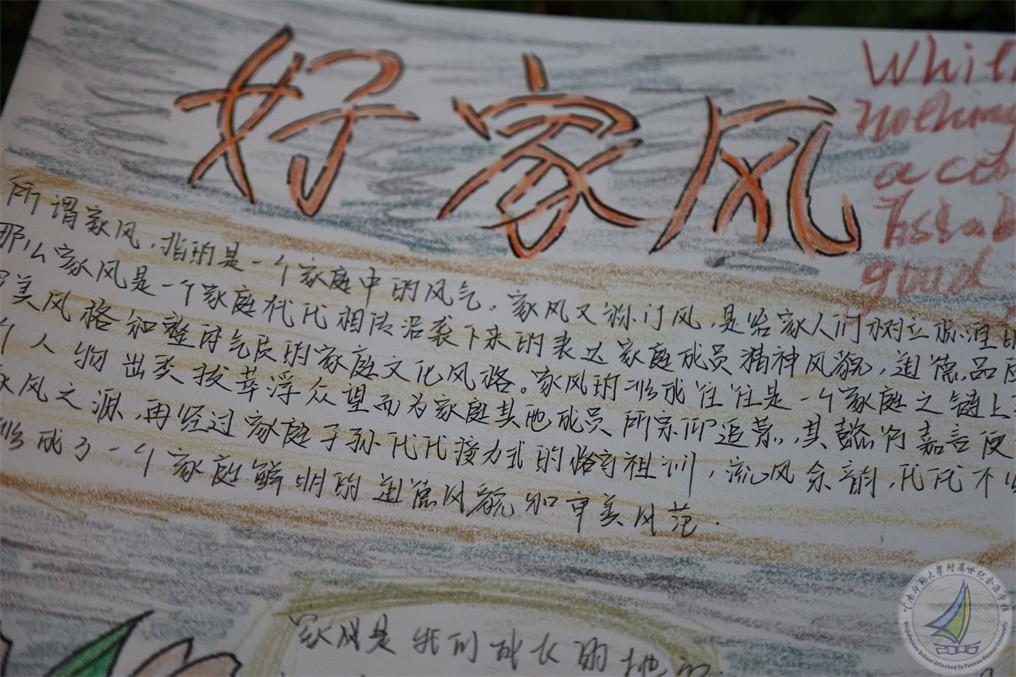 好家风
Whil
nothing
a
Estab
good
所谓家风，指的是一个家庭中的风气。家风又称门风，是给家人们树立
那么家风是一个家庭代代相传沿袭下来的表达家庭成员精神风貌，道德品
美风格和整体气质的家庭文化风格。家风的形成往往是一个家庭之链上
个人物出类拔萃浮众望而为家庭其他成员所宗仰追慕，其懿行嘉言便
家风之源，再经过家庭子孙代代接力式的恪守祖训，流风余韵，代代不
形成了一个家庭鲜明的道德风貌和审美风范.
家风是我们成长的地
云南师范大学附属世纪金源学校